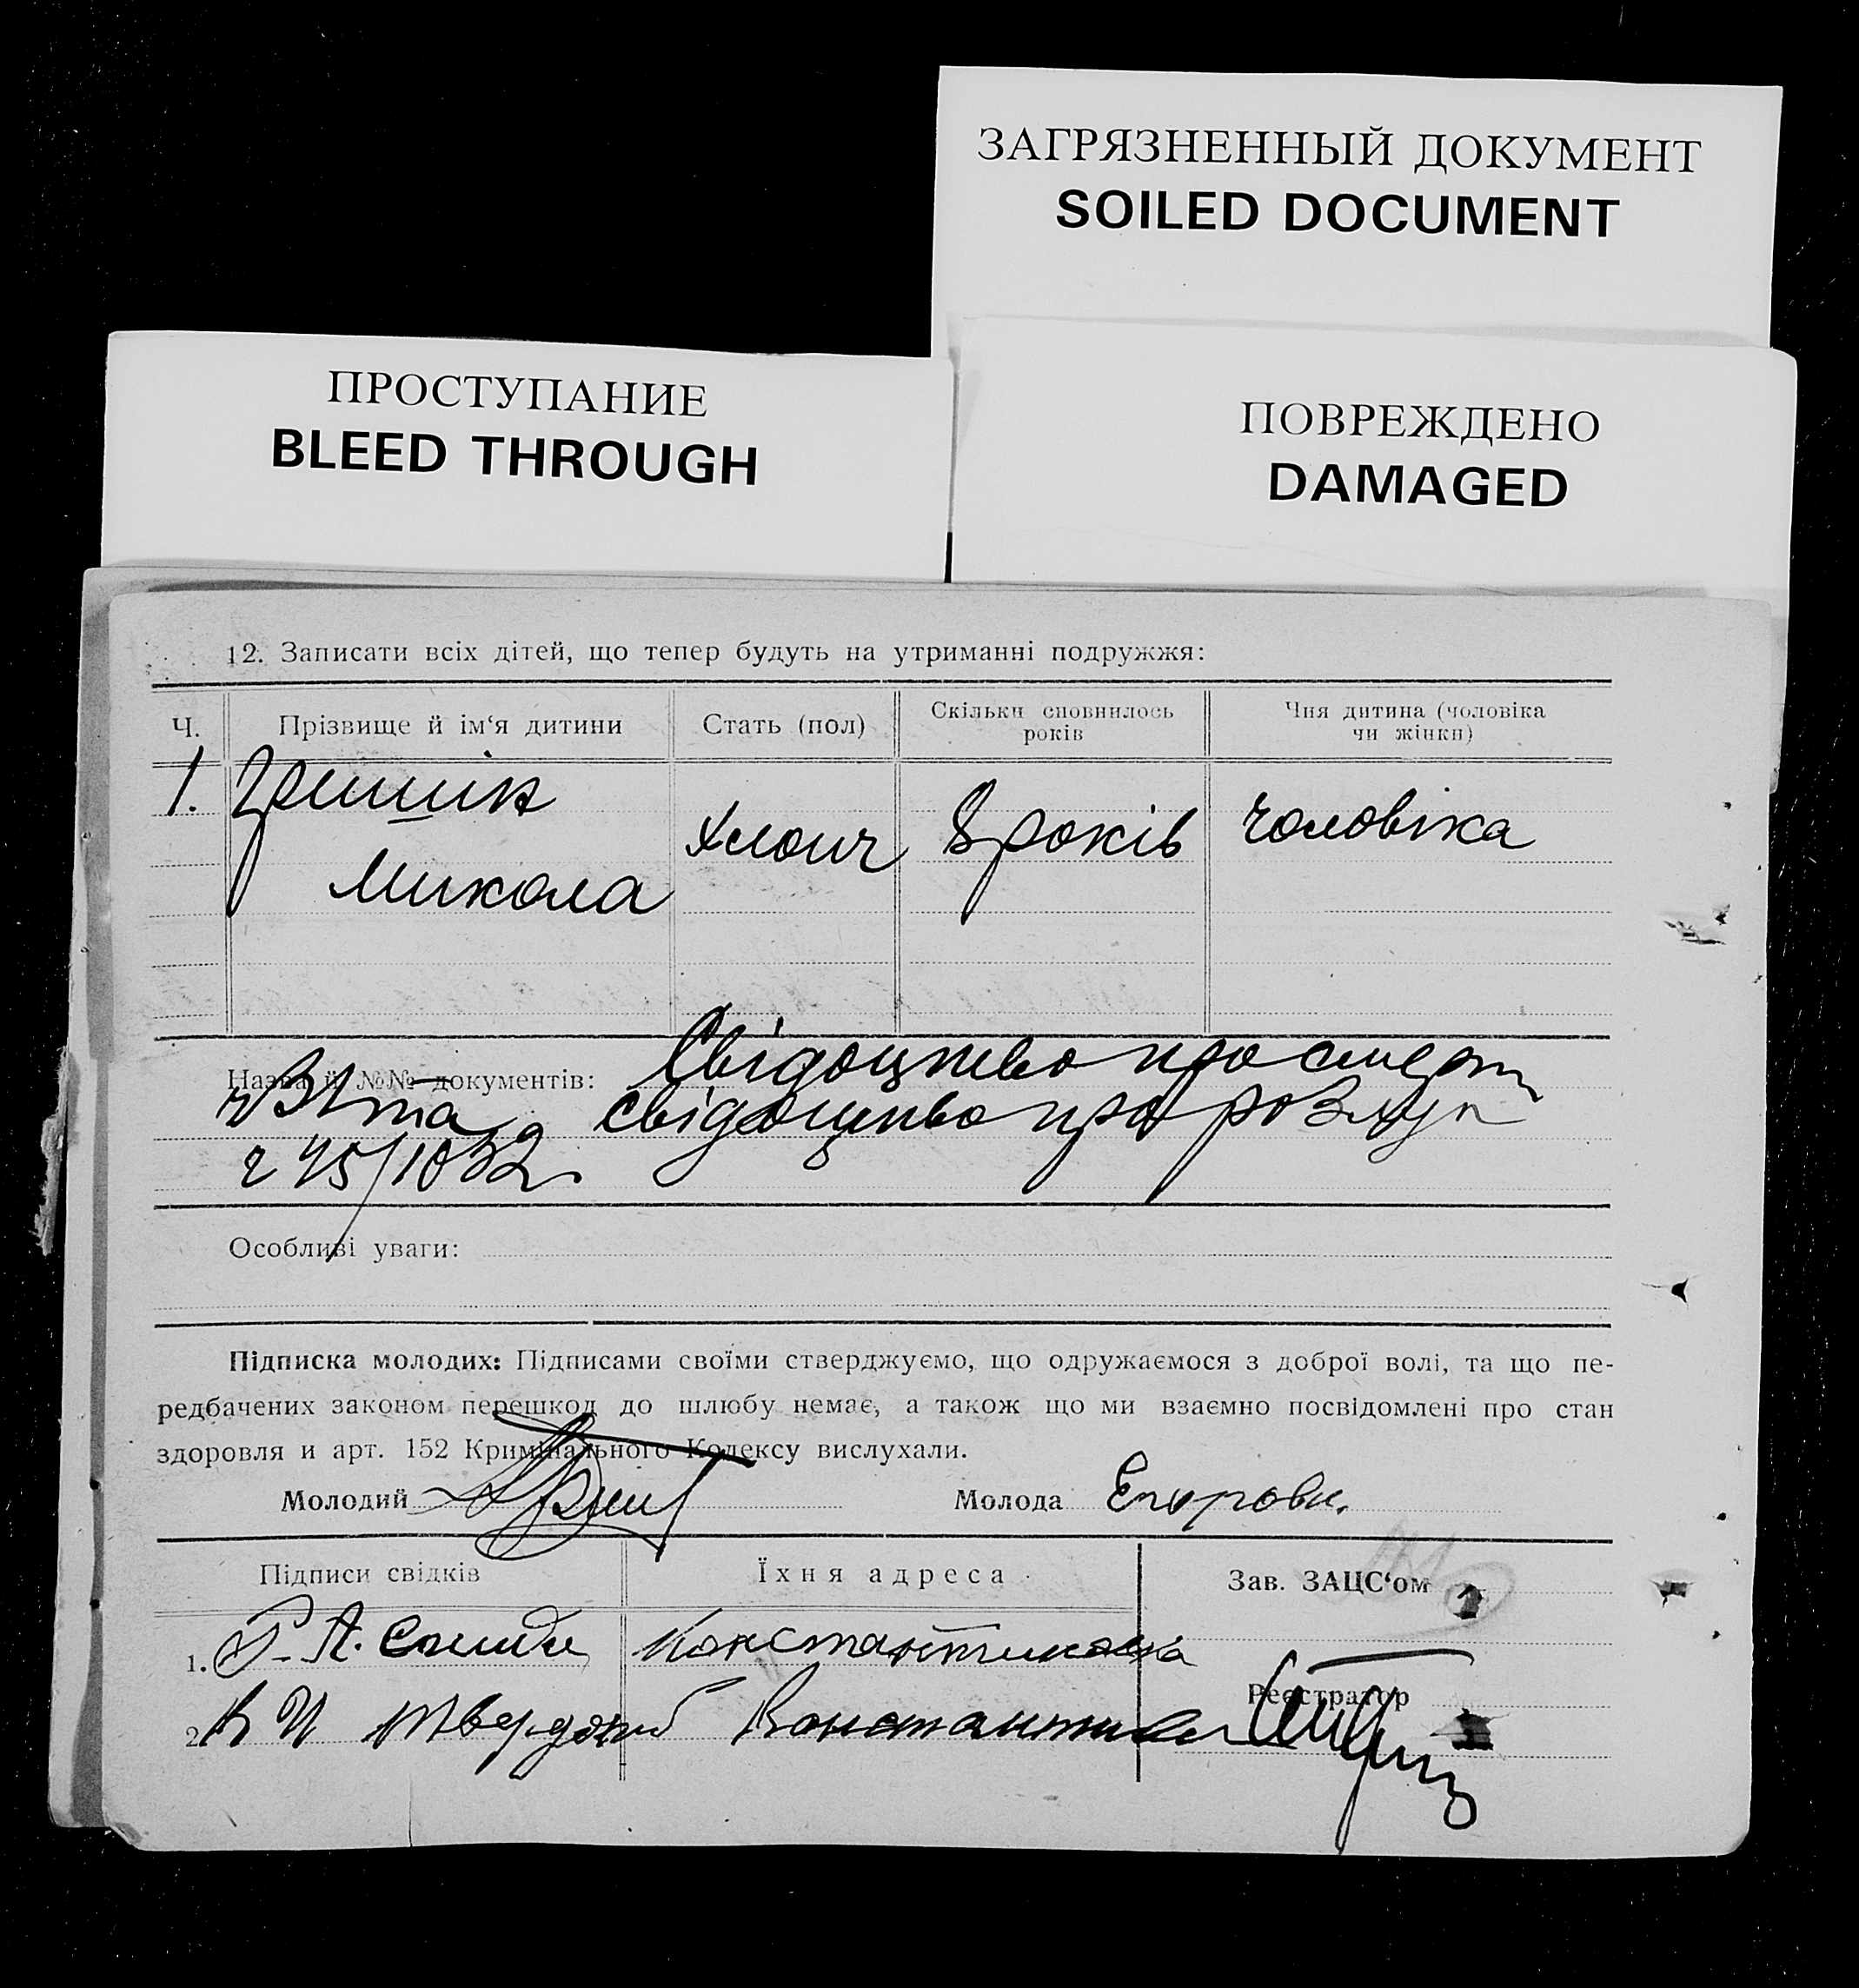 ЗАГРЯЗНЕННЫЙ ДОКУМЕНТ
SOILED DOCUMENT
ПРОСТУПАНИЕ
BLEED THROUGH
ПОВРЕЖДЕНО
DAMAGED
12. Записати всіх дітей, що тепер будуть на утриманні подружжя:
Ч. Прізвище й ім‘я дитини Стать (пол) Скільки сповнилось років Чия дитина (чоловіка чи жінки)
1. Гришін
Микола хлопч 8 років чоловіка
Назва й №№ документів: Свідоцтво про смерть
та свідоцтво про розлуч
Особливі уваги:
Підписка молодих: Підписами своїми стверджуємо, що одружаємося з доброї волі, та що пе-
редбачених законом перешкод до шлюбу немає, а також що ми взаємно посвідомлені про стан
здоровля и арт. 152 Кримінального Кодексу вислухали.
Молодий Молода Егорова
Підписи свідків Їхня адреса Зав. ЗАЦС‘ом
1.
Реєстратор
2.